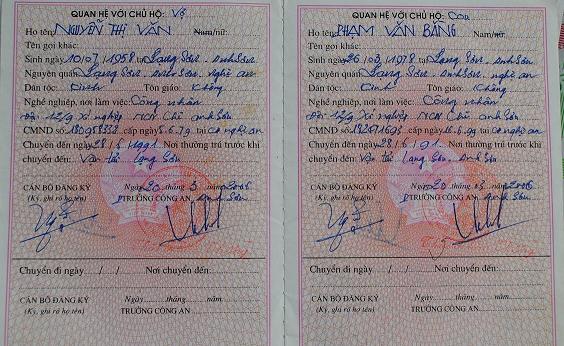 QUAN HỆ VỚI CHỦ HỘ: Vợ
Họ tên: NGUYỄN THỊ VÂN Nam/nữ:
Tên gọi khác:
Sinh ngày 10/07/1958 tại Lạng Sơn. Anh Sơn
Nguyên quán Lạng Sơn. Anh Sơn. Nghệ an
Dân tộc: Kinh Tôn giáo: Không
Nghề nghiệp, nơi làm việc: Công nhân
Xí nghiệp Chè anh Sơn
CMND số: cấp ngày tại ca nghệ an
Chuyển đến ngày 28/5/1991. Nơi thường trú trước khi
chuyển đến: Lạng Sơn
Ngày 20 tháng 3 năm 2006
CÁN BỘ ĐĂNG KÝ TRƯỞNG CÔNG AN Anh Sơn
(Ký, ghi rõ họ tên)
Chuyển đi ngày....../....../...... Nơi chuyển đến:
CÁN BỘ ĐĂNG KÝ Ngày......tháng......năm......
(Ký, ghi rõ họ tên) TRƯỞNG CÔNG AN
QUAN HỆ VỚI CHỦ HỘ: Con
Họ tên: PHẠM VĂN BẰNG Nam/nữ:
Tên gọi khác:
Sinh ngày 1978 tại Lạng Sơn. Anh Sơn
Nguyên quán: Lạng Sơn. Anh Sơn. Nghệ an
Dân tộc: Kinh Tôn giáo: Không
Nghề nghiệp, nơi làm việc: Công nhân
Xí nghiệp Chè anh Sơn
CMND số: cấp ngày tại ca nghệ an
Chuyển đến ngày 28/6/91. Nơi thường trú trước khi
chuyển đến: Lạng Sơn, Anh Sơn
Ngày 20 tháng 03 năm 2006
CÁN BỘ ĐĂNG KÝ TRƯỞNG CÔNG AN Anh Sơn
(Ký, ghi rõ họ tên)
Chuyển đi ngày....../....../...... Nơi chuyển đến:
CÁN BỘ ĐĂNG KÝ Ngày......tháng......năm......
(Ký, ghi rõ họ tên) TRƯỞNG CÔNG AN